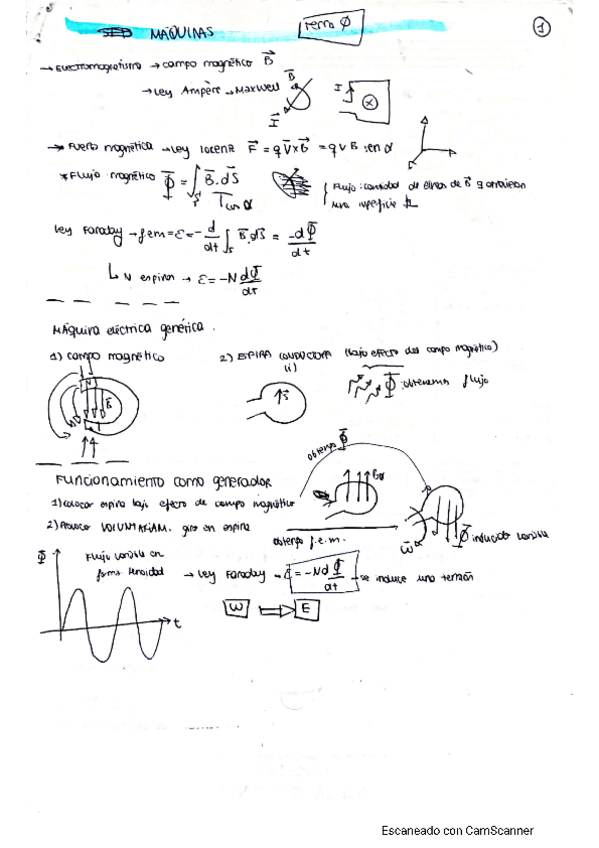 MÁQUINAS
tema Ø
1
→ Electromagnetismo → campo magnético B
→ Ley Ampère → Maxwell
B
I
I
→ Fuerza magnética → Ley Lorenz F = q V x B = q v B sen α
* Flujo magnético Φ = ∫s B . dS
T cos α
Flujo: cantidad de líneas de B q atraviesan
una superficie
Ley Faraday → fem = ε = - d/dt ∫s B . dS = -dΦ/dt
↳ N espiras → ε = -N dΦ/dt
Máquina eléctrica genérica.
1) campo magnético
2) ESPIRA CONDUCTORA (bajo efecto del campo magnético)
(i)
N
B
S
Φ obtenemos flujo
Funcionamiento como generador
obtengo Φ
1) colocar espira bajo efecto de campo magnético
2) Provoco VOLUNTARIAM. giro en espira
obtengo f.e.m.
ω
Φ inducido variable
Φ
Flujo variable en
forma senoidal
→ Ley Faraday → ε = -N dΦ/dt → se induce una tensión
t
W ⇒ E
Escaneado con CamScanner